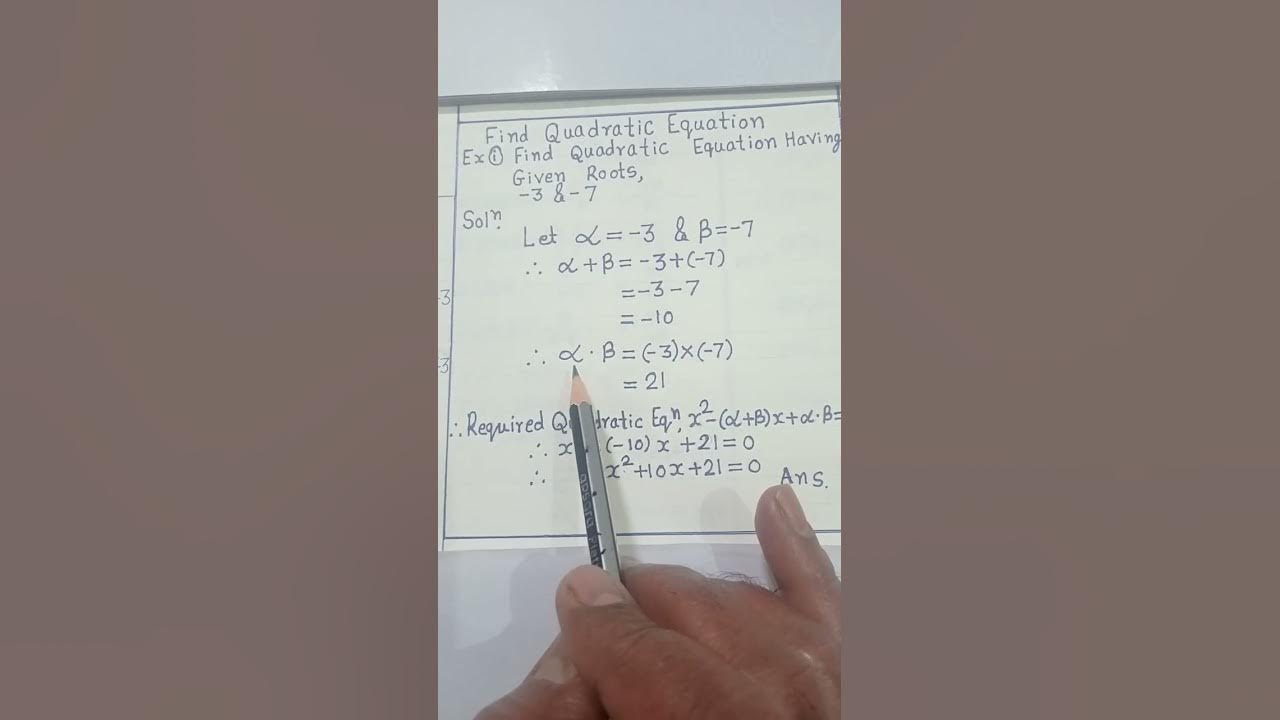 Find Quadratic Equation
Ex① Find Quadratic Equation Having
Given Roots,
-3 & -7
Solⁿ.
Let α = -3 & β = -7
∴ α + β = -3+(-7)
= -3 - 7
= -10
∴ α · β = (-3)×(-7)
= 21
∴ Required Quadratic Eqⁿ, x²-(α+β)x+α·β=
∴ x (-10) x + 21 = 0
∴ x²+10x+21=0 Ans.
-3
-3